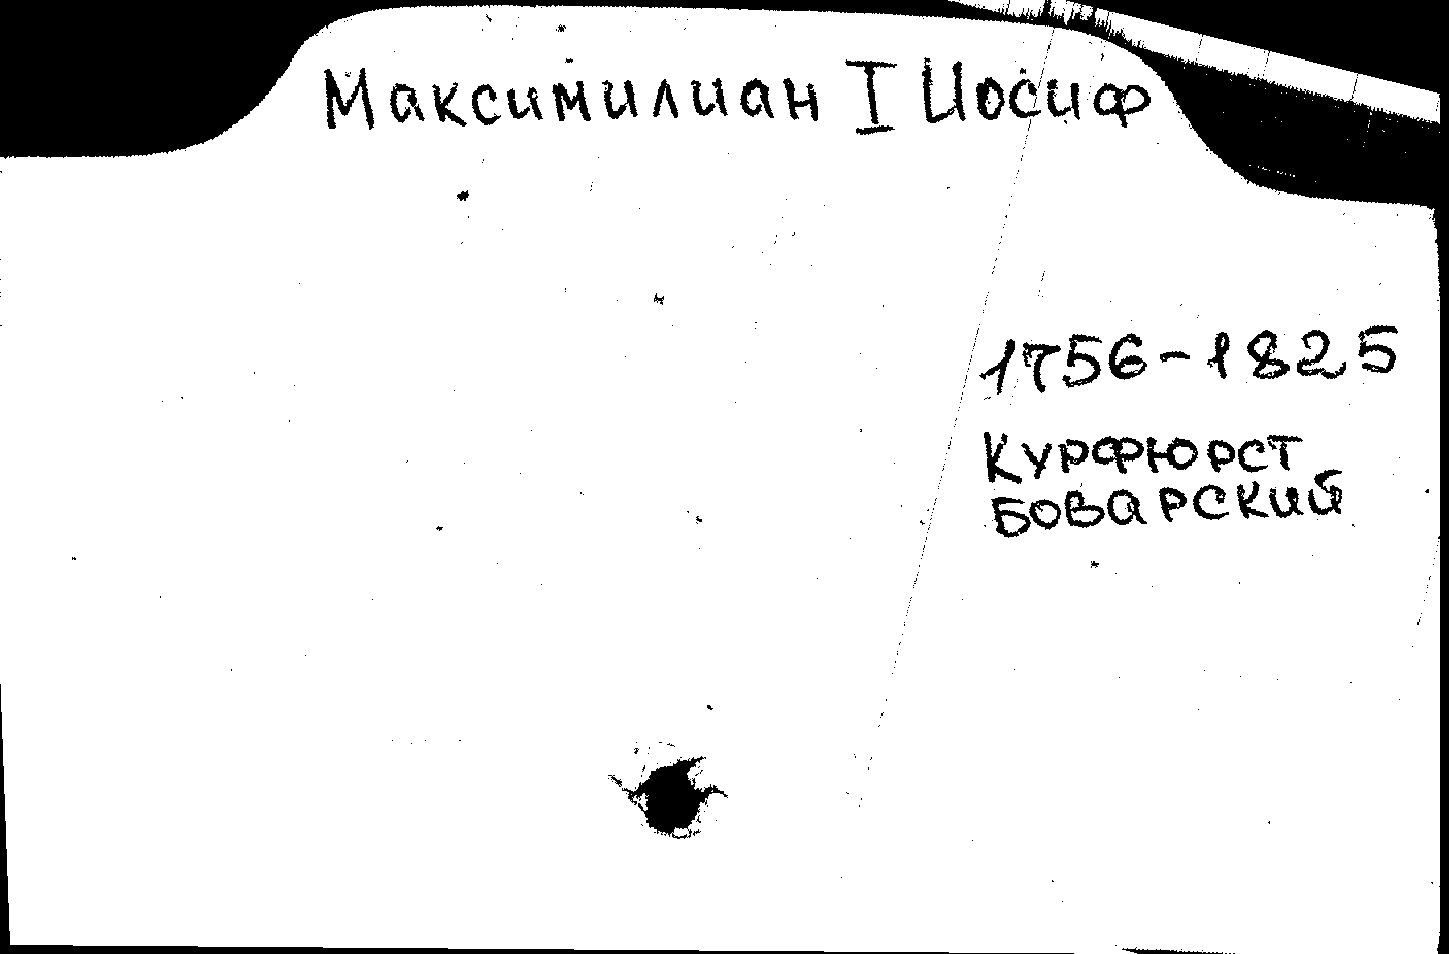 Максимилиан I Иосиф
1756-1825
Курфюрст
Боварский